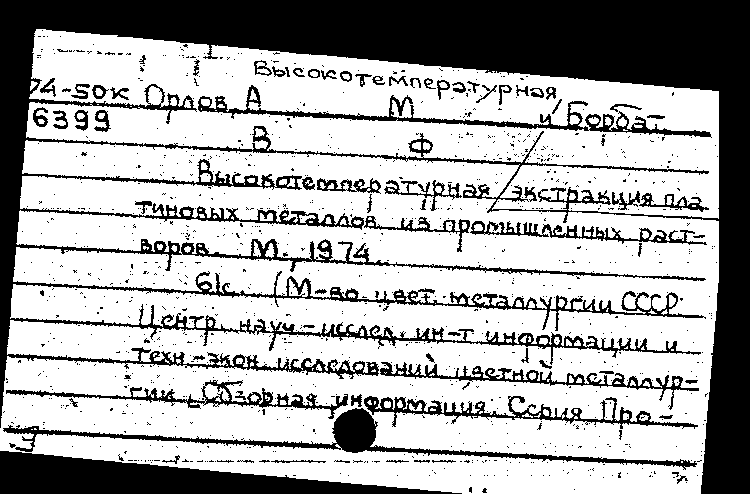 Высокотемпературная
74-50к Орлов, А М и Борбат,
6399 В Ф
Высокотемпературная экстракция пла
тиновых металлов из промышленных раст-
воров. М., 1974.
61с. (М-во цвет. металлургии СССР.
Центр. науч-исслед. ин-т информации и
техн-экон. исследований цветной металлур-
гии. Обзорная информация. Серия Про-